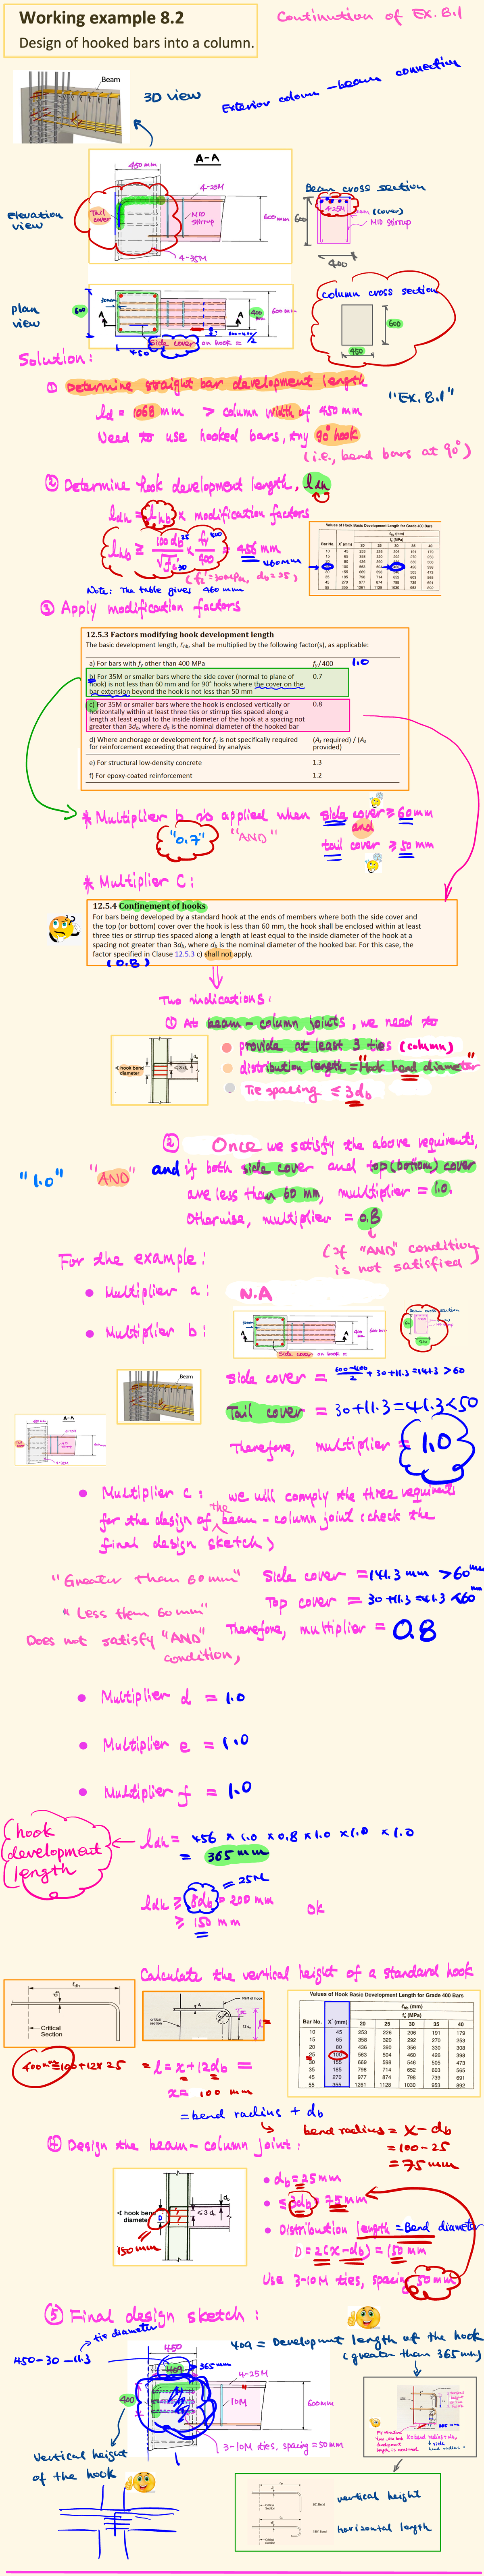 Working example 8.2
Design of hooked bars into a column.
Continuation of Ex. 8.1
Exterior column - beam connection
Beam
3D view
A-A
450 mm
4-25M
Tail cover
M10 stirrup
600 mm
4-35M
Elevation view
Beam cross section
4-25M
(cover)
M10 stirrup
600
400
Plan view
600
30mm
A
A
400 mm
600 mm
450
Side cover on hook =
column cross section
600
450
Solution:
① Determine straight bar development length
ld = 1068 mm > column width of 450 mm
"Ex. 8.1"
Need to use hooked bars, try 90° hook
(i.e., bend bars at 90°)
② Determine hook development length, ldh
ldh = lhb × modification factors
lhb ≥ 100 db/√f'c × fy/400 = 456 mm
460 mm
(f'c = 30 MPa, db = 25)
Note: The table gives 460 mm
Values of Hook Basic Development Length for Grade 400 Bars
③ Apply modification factors
12.5.3 Factors modifying hook development length
The basic development length, ℓhb, shall be multiplied by the following factor(s), as applicable:
a) For bars with fy other than 400 MPa fy/400 1.0
b) For 35M or smaller bars where the side cover (normal to plane of
hook) is not less than 60 mm and for 90° hooks where the cover on the
bar extension beyond the hook is not less than 50 mm 0.7
c) For 35M or smaller bars where the hook is enclosed vertically or
horizontally within at least three ties or stirrup ties spaced along a
length at least equal to the inside diameter of the hook at a spacing not
greater than 3db, where db is the nominal diameter of the hooked bar 0.8
d) Where anchorage or development for fy is not specifically required
for reinforcement exceeding that required by analysis (As required) / (As provided)
e) For structural low-density concrete 1.3
f) For epoxy-coated reinforcement 1.2
* Multiplier b is applied when side cover ≥ 60 mm
"0.7" "AND" and
tail cover ≥ 50 mm
* Multiplier C:
12.5.4 Confinement of hooks
For bars being developed by a standard hook at the ends of members where both the side cover and
the top (or bottom) cover over the hook is less than 60 mm, the hook shall be enclosed within at least
three ties or stirrup ties spaced along a length at least equal to the inside diameter of the hook at a
spacing not greater than 3db, where db is the nominal diameter of the hooked bar. For this case, the
factor specified in Clause 12.5.3 c) shall not apply.
(0.8)
Two indications:
① At beam-column joints, we need to
provide at least 3 ties (column)
distribution length = "Hook bend diameter"
Tie spacing ≤ 3db
≮ hook bend diameter
≤ 3 db
db
② Once we satisfy the above requirements,
"1.0" "AND" and if both side cover and top (bottom) cover
are less than 60 mm, multiplier = 1.0.
Otherwise, multiplier = 0.8
(if "AND" condition
is not satisfied)
For the example:
Multiplier a: N.A
Multiplier b:
Side cover on hook =
Beam cross section
side cover = (600-400)/2 + 30 + 11.3 = 141.3 > 60
Tail cover = 30 + 11.3 = 41.3 < 50
Therefore, multiplier = 1.0
Beam
A-A
Multiplier c: we will comply the three requirements
for the design of the beam-column joint (check the
final design sketch)
"Greater than 60 mm" Side cover = 141.3 mm > 60 mm
"Less than 60 mm" Top cover = 30 + 11.3 = 41.3 < 60 mm
Does not satisfy "AND" condition, Therefore, multiplier = 0.8
Multiplier d = 1.0
Multiplier e = 1.0
Multiplier f = 1.0
hook development length
ldh = 456 × 1.0 × 0.8 × 1.0 × 1.0 × 1.0
= 365 mm
= 25M
ldh ≥ 8db = 200 mm OK
≥ 150 mm
Calculate the vertical height of a standard hook
ℓdh
Critical Section
start of hook
Critical section
Values of Hook Basic Development Length for Grade 400 Bars
ℓhb (mm)
f'c (MPa)
Bar No. X* (mm) 20 25 30 35 40
10 45 253 226 206 191 179
15 65 358 320 292 270 253
20 80 436 390 356 330 308
25 100 563 504 460 426 398
30 155 669 598 546 505 473
35 185 798 714 652 603 565
45 270 977 874 798 739 691
55 355 1261 1128 1030 953 892
400 mm = 100 + 12 × 25 = l = x + 12db =
x = 100 mm
= bend radius + db
bend radius = x - db
= 100 - 25
= 75 mm
④ Design the beam-column joint:
≮ hook bend diameter
D
150 mm
≤ 3 db
db
db = 25 mm
≤ 3db = 75 mm
Distribution length = Bend diameter
D = 2(x-db) = 150 mm
Use 3-10M ties, spacing 50 mm
⑤ Final design sketch:
tie diameter
450-30-11.3
450
409
365 mm
4-25M
400
10M
600 mm
3-10M ties, spacing = 50 mm
409 = Development length of the hook
(greater than 365 mm)
vertical height of the hook
Critical Section
90° Bend
Critical Section
180° Bend
vertical height
horizontal length